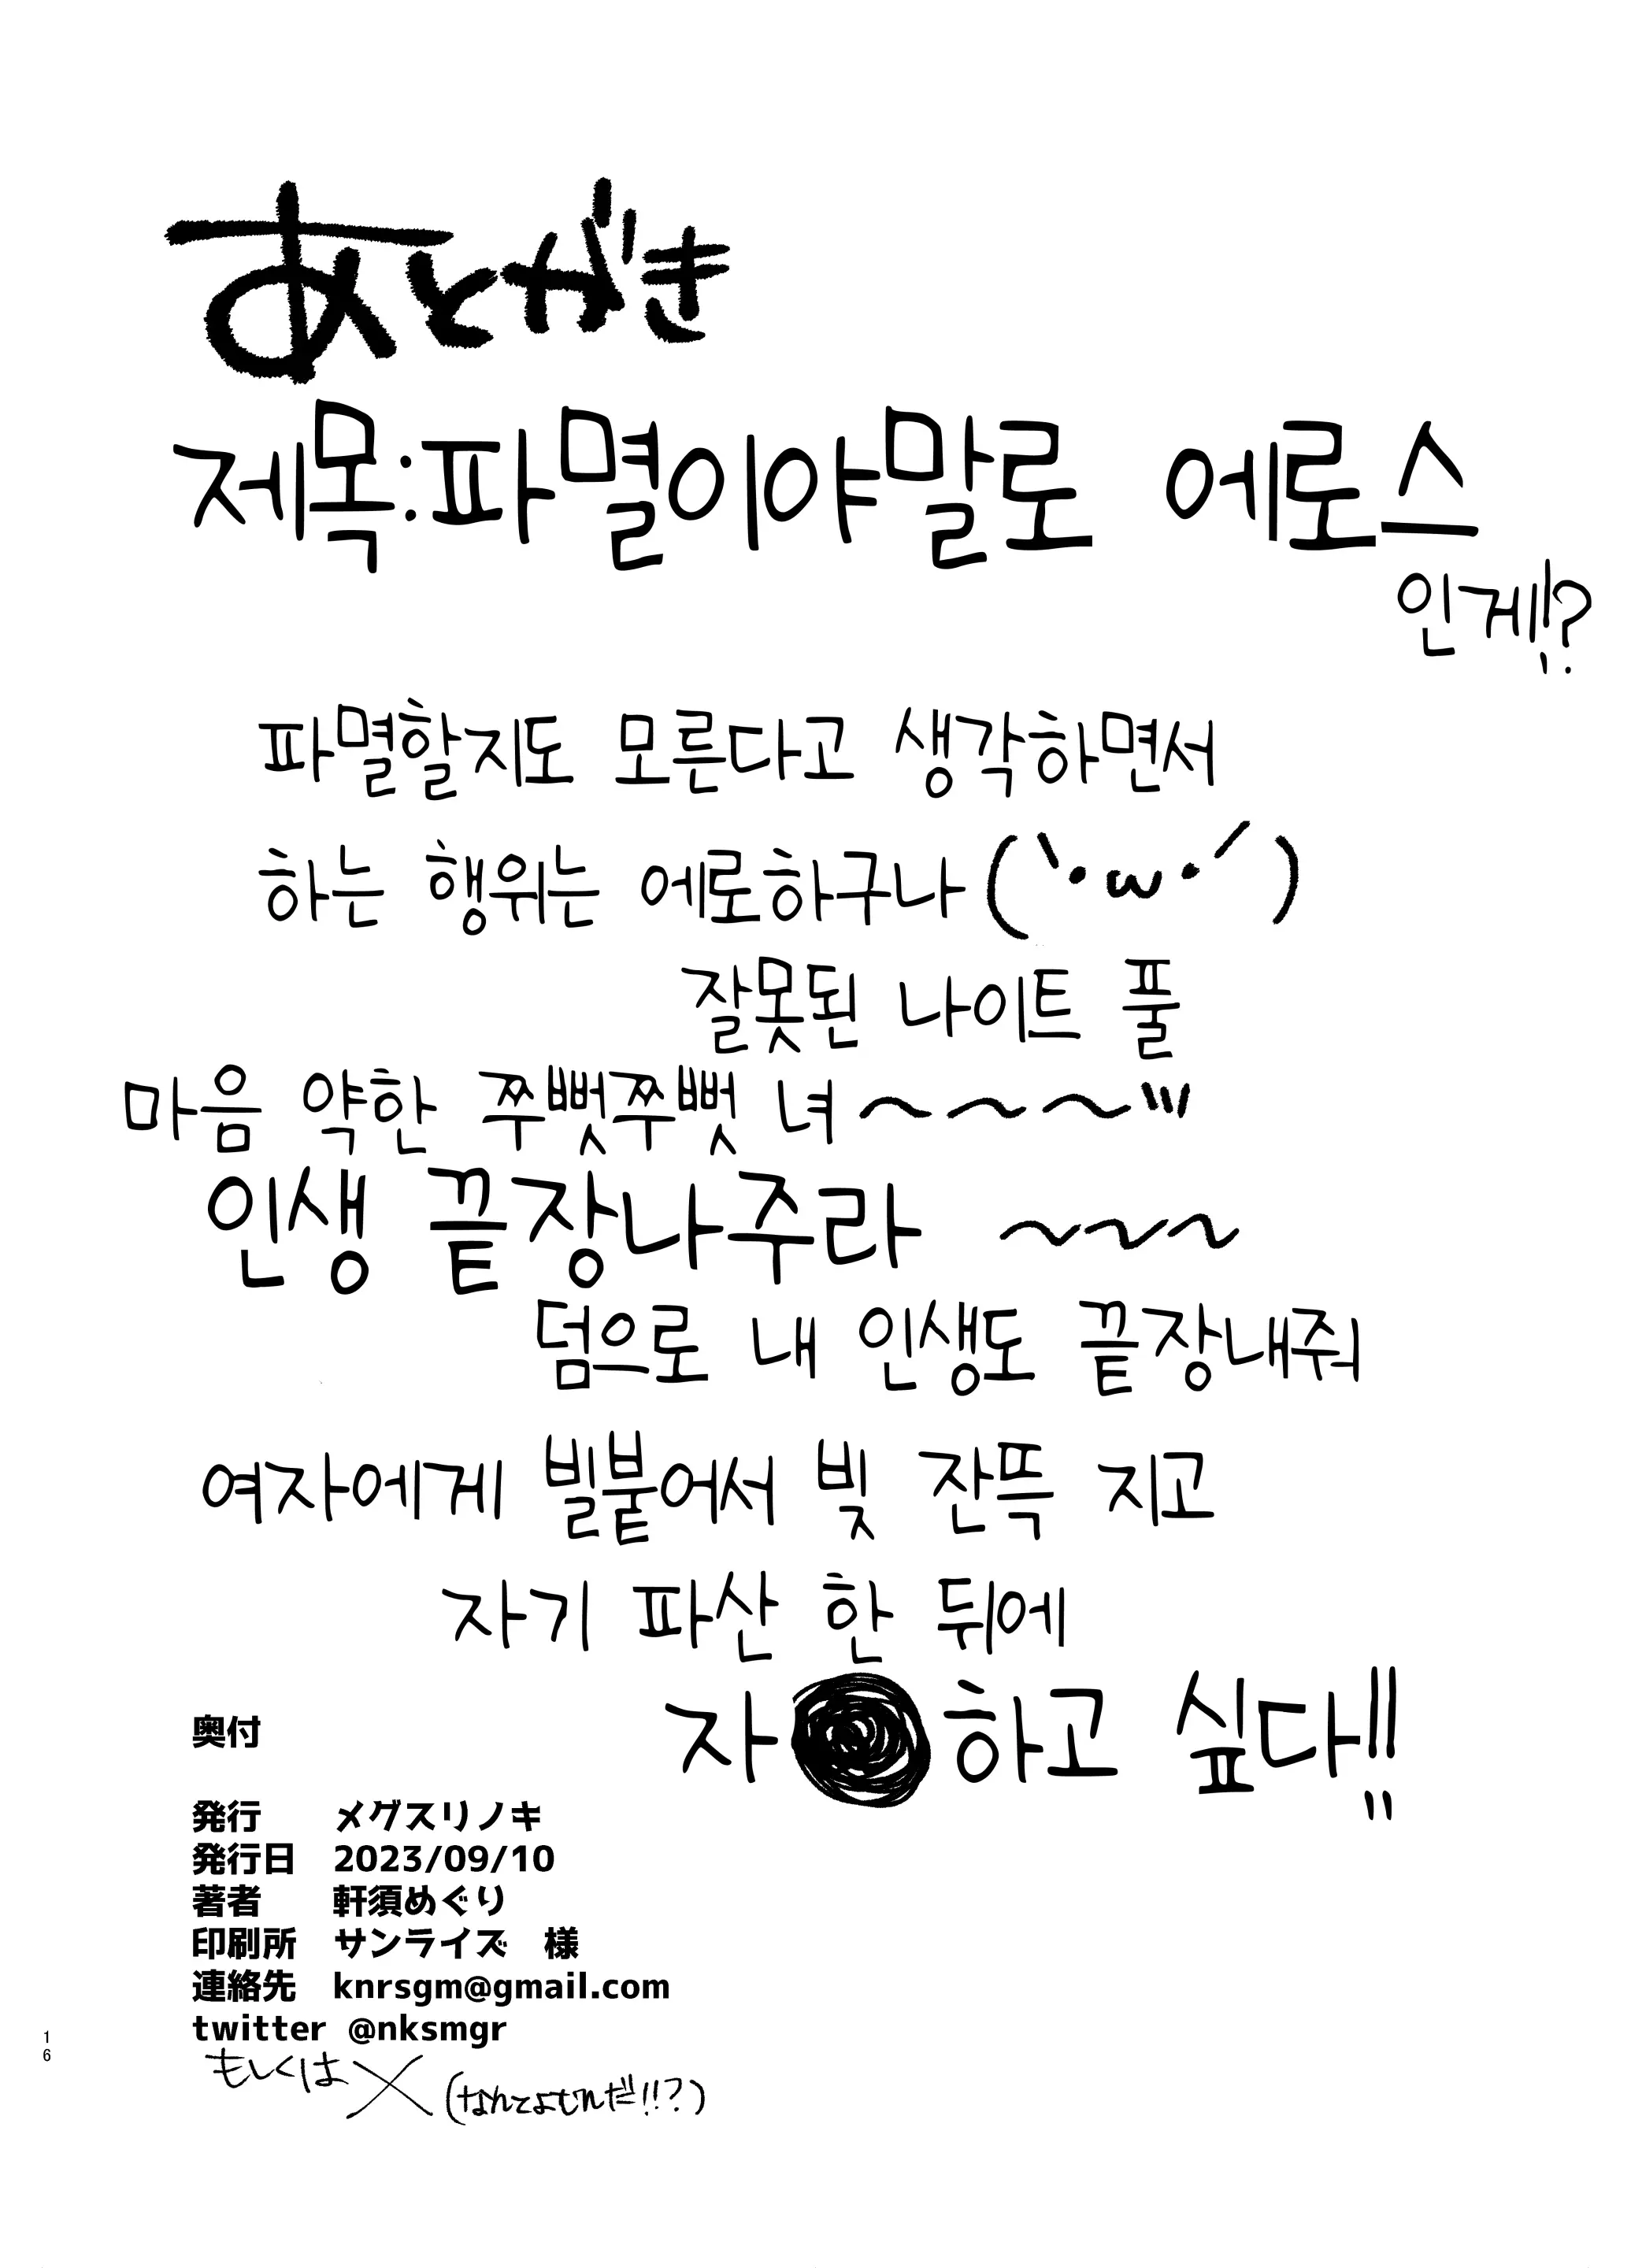 あとがき
제목:파멸이야말로 에로스
인게!?
파멸할지도 모른다고 생각하면서
하는 행위는 에로하구나(`・ω・´)
잘못된 나이트 풀
마음 약한 쭈뻣쭈뻣 녀~~~
인생 끝장나주라 ~~~
덤으로 내 인생도 끝장내줘
여자에게 빌붙어서 빚 잔뜩 지고
자기 파산 한 뒤에
자●하고 싶다!!
奥付
発行 メグスリノキ
発行日 2023/09/10
著者 軒須めぐり
印刷所 サンライズ 様
連絡先 knrsgm@gmail.com
twitter @nksmgr
もしくはX(なんてよむんだ!!?)
16